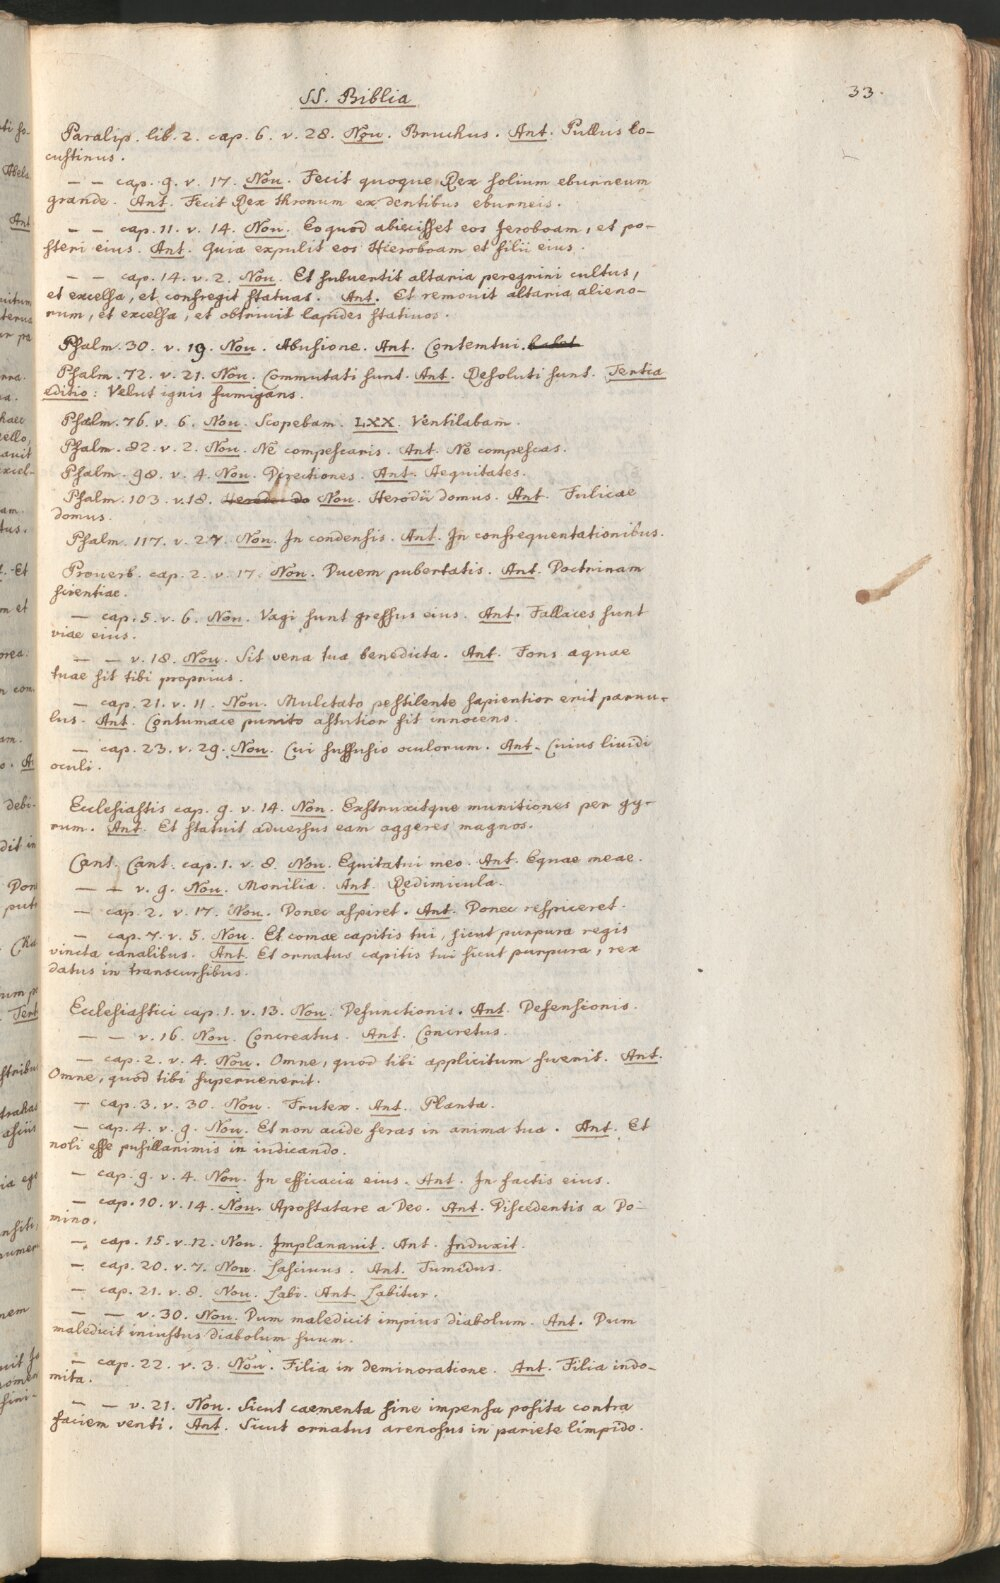 SS. Biblia
33.
Paralip. lib. 2. cap. 6. v. 28. Nov. Bruchus. Ant. Pullus lo-
custinus.
— — cap. 9. v. 17. Nov. Fecit quoque Rex solium eburneum
grande. Ant. Fecit Rex thronum ex dentibus eburneis.
— — cap. 11. v. 14. Nov. Eo quod abiecisset eos Jeroboam, et po-
steri eius. Ant. Quia expulit eos Hieroboam et filii eius.
— — cap. 14. v. 2. Nov. Et subvertit altaria peregrini cultus,
et excelsa, et confregit statuas. Ant. Et removit altaria alieno-
rum, et excelsa, et obtrivit lapides stativos.
Psalm. 30. v. 19. Nov. Abusione. Ant. Contemtui.
Psalm. 72. v. 21. Nov. Commutati sunt. Ant. Resoluti sunt. Tertia
editio: Velut ignis fumigans.
Psalm. 76. v. 6. Nov. Scopebam. LXX. Ventilabam.
Psalm. 82. v. 2. Nov. Ne compescaris. Ant. Ne compescas.
Psalm. 98. v. 4. Nov. Directiones. Ant. Aequitates.
Psalm. 103. v. 18. Nov. Herodii domus. Ant. Fulicae
domus.
Psalm. 117. v. 27. Nov. In condensis. Ant. In confrequentationibus.
Proverb. cap. 2. v. 17. Nov. Ducem pubertatis. Ant. Doctrinam
scientiae.
— cap. 5. v. 6. Nov. Vagi sunt gressus eius. Ant. Fallaces sunt
viae eius.
— — v. 18. Nov. Sit vena tua benedicta. Ant. Fons aquae
tuae sit tibi proprius.
— cap. 21. v. 11. Nov. Mulctato pestilente sapientior erit parvu-
lus. Ant. Contumace punito astutior fit innocens.
— cap. 23. v. 29. Nov. Cui suffusio oculorum. Ant. Cuius lividi
oculi.
Ecclesiastis cap. 9. v. 14. Nov. Exstruxitque munitiones per gy-
rum. Ant. Et statuit adversus eam aggeres magnos.
Cant. Cant. cap. 1. v. 8. Nov. Equitatui meo. Ant. Equae meae.
— — v. 9. Nov. Monilia. Ant. Redimicula.
— cap. 2. v. 17. Nov. Donec aspiret. Ant. Donec respiceret.
— cap. 7. v. 5. Nov. Et comae capitis tui, sicut purpura regis
vincta canalibus. Ant. Et ornatus capitis tui sicut purpura, rex
datus in transcursibus.
Ecclesiastici cap. 1. v. 13. Nov. Defunctionis. Ant. Defensionis.
— — v. 16. Nov. Concreatus. Ant. Concretus.
— cap. 2. v. 4. Nov. Omne, quod tibi applicitum fuerit. Ant.
Omne, quod tibi supervenerit.
— cap. 3. v. 30. Nov. Frutex. Ant. Planta.
— cap. 4. v. 9. Nov. Et non acide feras in anima tua. Ant. Et
noli esse pusillanimis in iudicando.
— cap. 9. v. 4. Nov. In efficacia eius. Ant. In factis eius.
— cap. 10. v. 14. Nov. Apostatare a Deo. Ant. Discedentis a Do-
mino.
— cap. 15. v. 12. Nov. Implanavit. Ant. Induxit.
— cap. 20. v. 7. Nov. Lascivus. Ant. Tumidus.
— cap. 21. v. 8. Nov. Labi. Ant. Labitur.
— — v. 30. Nov. Dum maledicit impius diabolum. Ant. Dum
maledicit iniustus diabolum suum.
— cap. 22. v. 3. Nov. Filia in deminoratione. Ant. Filia indo-
mita.
— — v. 21. Nov. Sicut caementa sine impensa posita contra
faciem venti. Ant. Sicut ornatus arenosus in pariete limpido.